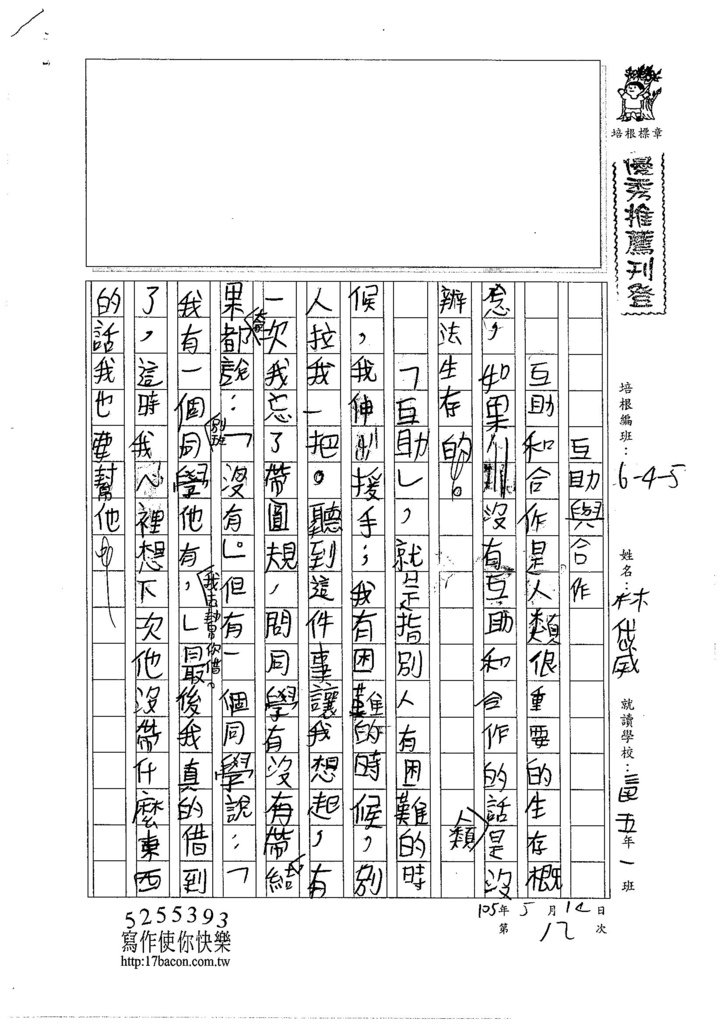 培根標章
優秀推薦刊登
培根編班：6-4-5
姓名：林岱威
就讀學校：五年1班
105年5月14日
第12次
互助與合作
互助和合作是人類很重要的生存概
念，如果人類沒有互助和合作的話是沒
辦法生存的。
「互助」，就是指別人有困難的時
候，我伸出援手；我有困難的時候，別
人拉我一把。聽到這件事讓我想起，有
一次我忘了帶圓規，問同學有沒有帶，結
果大都說：「沒有」。但有一個同學說：「
我有一個別班同學他有，我去幫你借。」最後我真的借到
了，這時我心裡想下次他沒帶什麼東西
的話我也要幫他。
5255393
寫作使你快樂
http:17bacon.com.tw